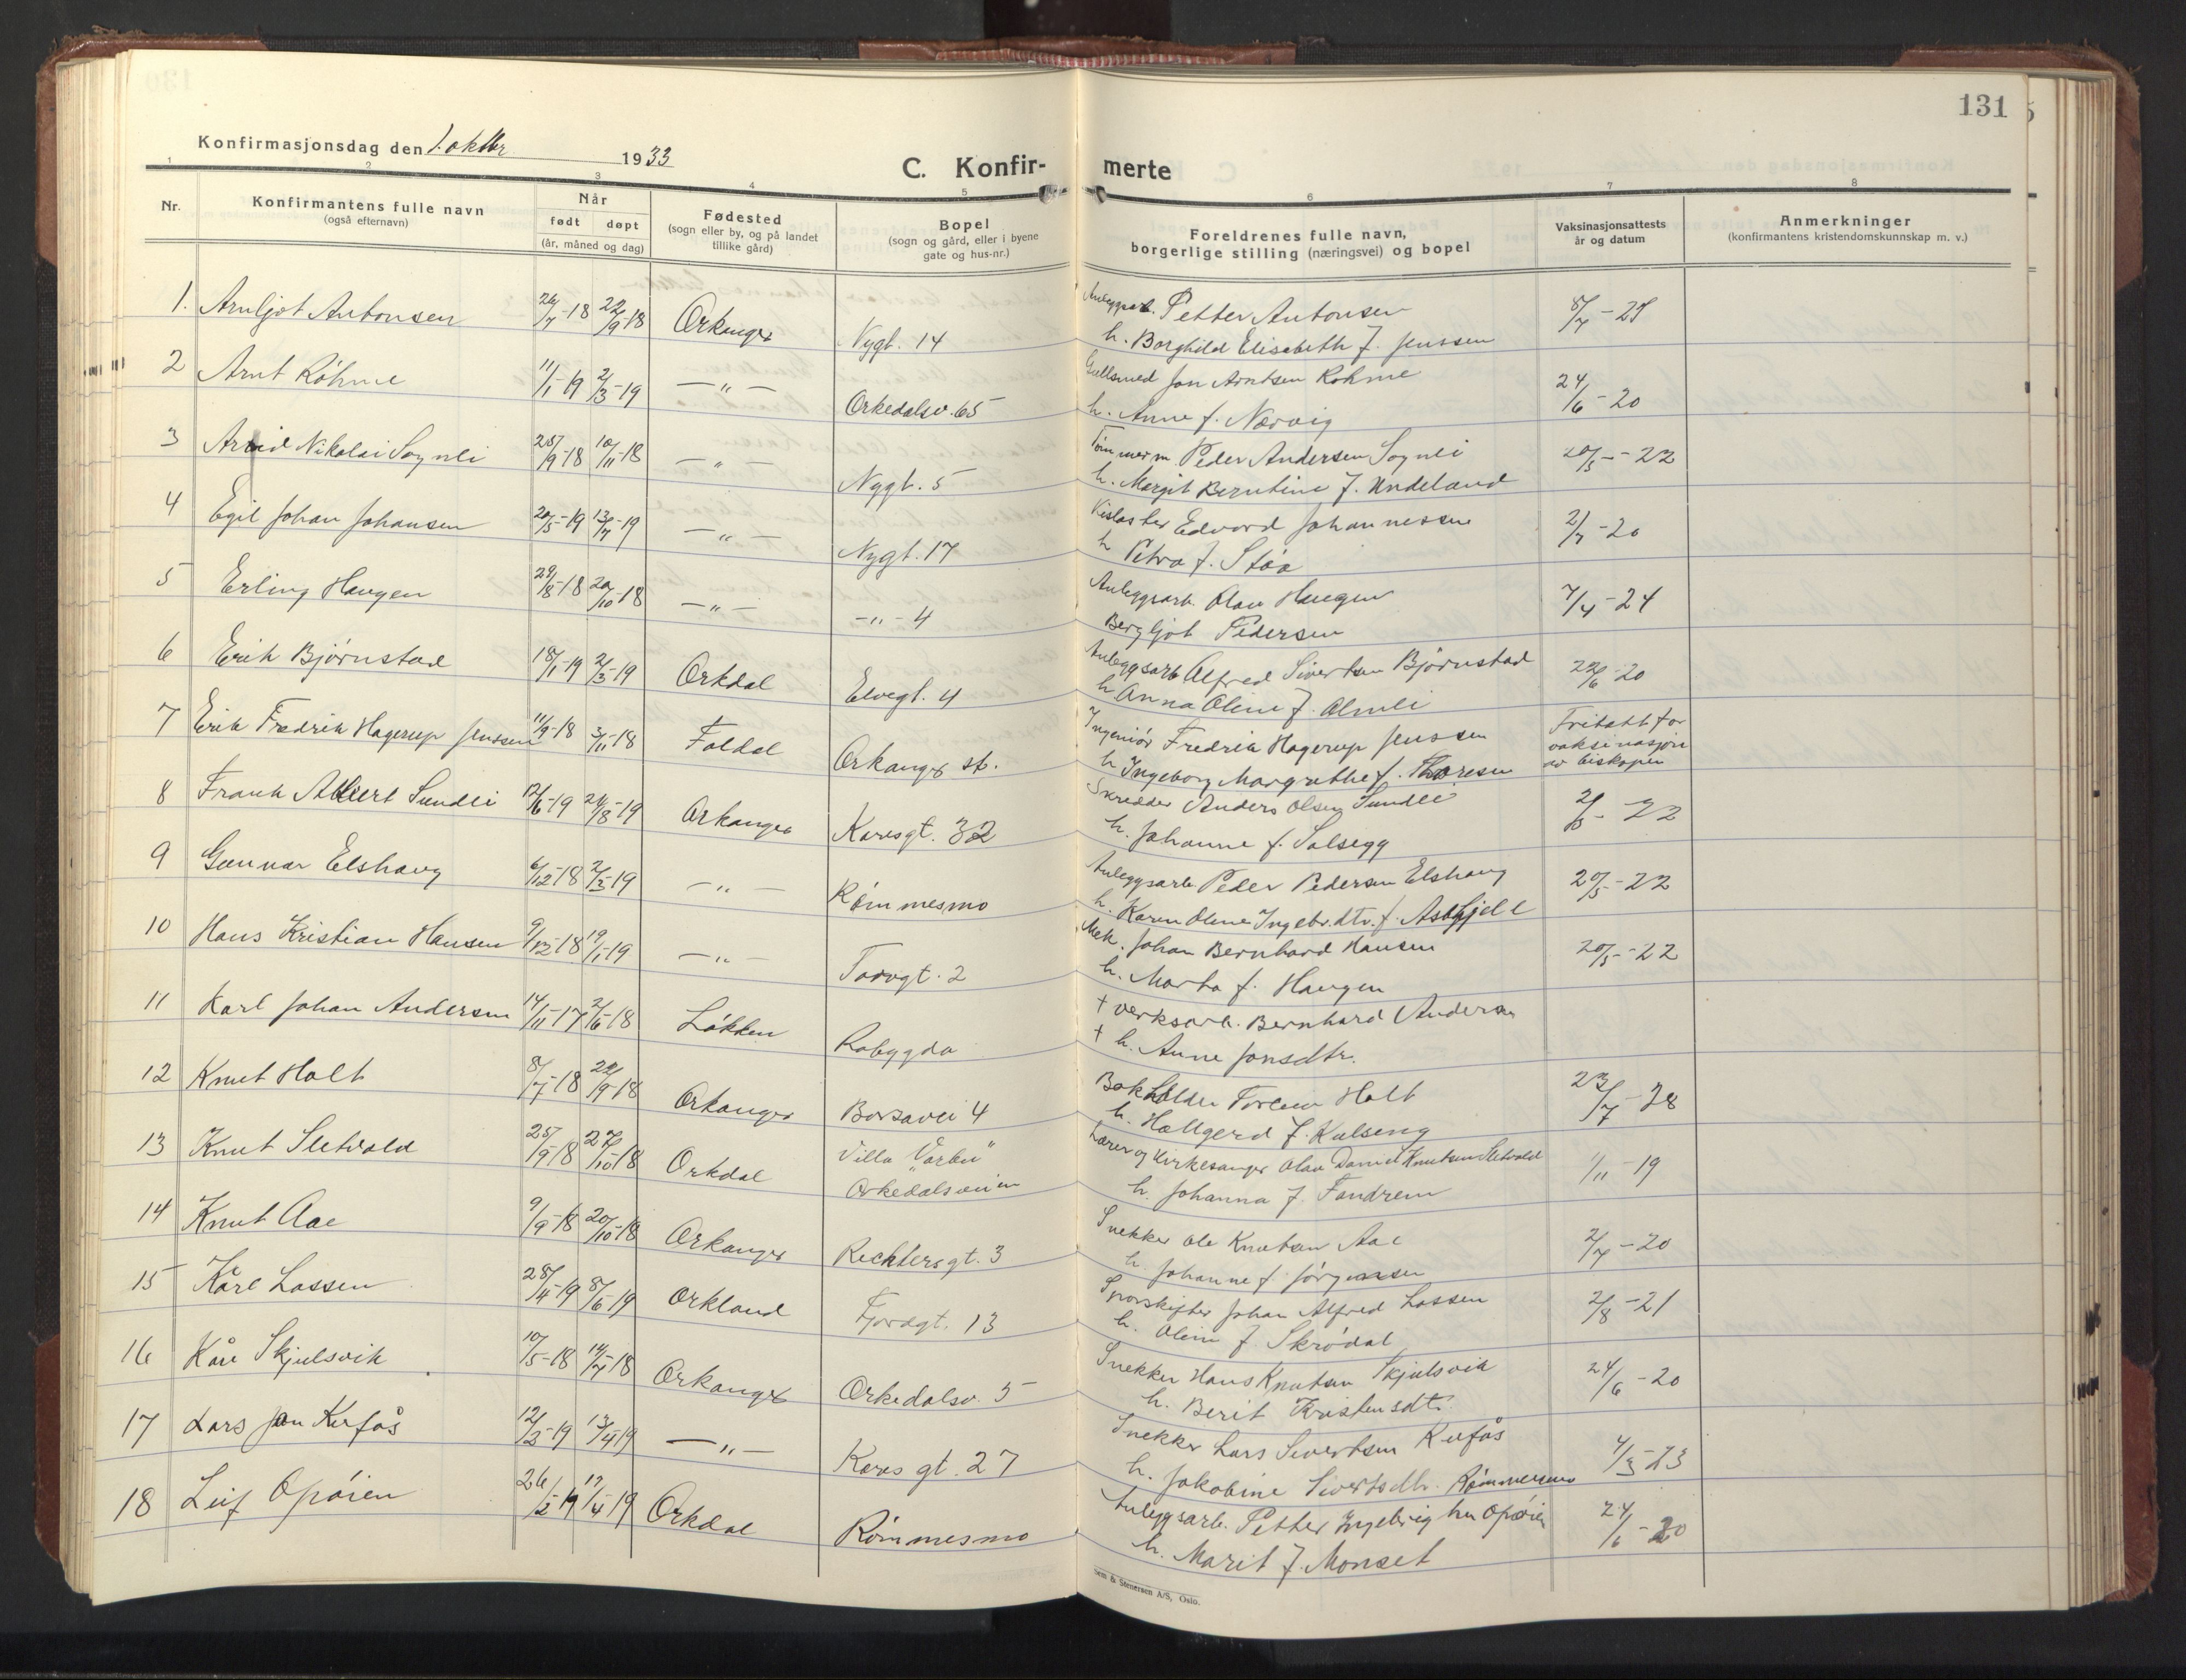 131
Konfirmasjonsdag den 1. oktbr. 1933
C. Konfir- merte
1 2 3 4 5 6 7 8
Nr.
Konfirmantens fulle navn
(også efternavn)
Når
født døpt
(år, måned og dag)
Fødested
(sogn eller by, og på landet
tillike gård)
Bopel
(sogn og gård, eller i byene
gate og hus-nr.)
Foreldrenes fulle navn,
borgerlige stilling (næringsvei) og bopel
Vaksinasjonsattests
år og datum
Anmerkninger
(konfirmantens kristendomskunnskap m. v.)
1. Arnljot Antonsen 26/7-18 22/9-18 Orkanger Nygt. 14 Anleggsarb. Petter Antonsen
h. Borghild Elisabeth f. Jenssen
2 Arnt Röhme 11/1-19 2/3-19 —"— Orkedalsv. 65 Gullsmed Jon Arntsen Rohme 24/6-20
h. Anne f. Nervig
3 Arvid Nikolai Sognli 25/9-18 10/11-18 —"— Nygt. 5 Tømmerm. Peder Andersen Sognli 20/5-22
h. Margit Berntine f. Undeland
4 Egil Johan Johansen 20/5-19 13/7-19 —"— Nygt. 17 Kislaster Edvard Johannessen 2/7-20
h Petra f. Støa
5 Erling Haugen 29/8-18 20/10-18 —"— -"- 4 Anleggsarb. Olav Haugen 7/4-24
Bergljot Pedersen
6 Erik Bjørnstad 18/1-19 2/3-19 Orkdal Elvegt. 4 Anleggsarb Alfred Sivertsen Bjørnstad 22/6-20
h Anna Oline f. Olmli
7 Erik Fredrik Hagerup Jenssen 11/9-18 3/11-18 Foldal Orkanger st. Ingeniør Fredrik Hagerup Jenssen Fritatt for
vaksinasjon
av biskopen
h Ingeborg Margrethe f. Thoresen
8 Frank Albert Sundli 12/6-19 24/8-19 Orkanger Karesgt. 32 Skredder Anders Olsen Sundli
h. Johanne f. Solsegg
9 Gunnar Elshaug 6/12-18 2/3-19 —"— Rømmesmo Anleggsarb Peder Pedersen Elshaug 20/5-22
h. Karen Oline Ingebr.dtr. f. Asbgjell
10 Hans Kristian Hansen 9/12-18 19/1-19 —"— Torvgt. 2 Mek. Johan Bernhard Hansen 20/5-22
h. Marta f. Haugen
11 Karl Johan Andersen 14/11-17 2/6-18 Løkken Rabygda † verksarb. Bernhard Andersen
† h. Anne Jonsdtr.
12 Knut Holt 8/7-18 22/9-18 Orkanger Borsavei 4 Bokholder Torleiv Holt 23/7-28
h. Hallgerd f. Kulseng
13 Knut Sletvold 25/9-18 27/10-18 Orkdal Villa "Varbu" Lærer og Kirkesanger Olav Daniel Knutsen Sletvold 1/11-19
Orkedalsveien
h. Johanna f. Fandrem
14 Knut Aae 9/9-18 20/10-18 Orkanger Rechtersgt. 3 Snekker Ole Knutsen Aae 2/7-20
h. Johanne f. Jørgensen
15 Kåre Lassen 28/4-19 8/6-19 Orkland Fjordgt. 13 Sporskifter Johan Alfred Lassen 2/8-21
h. Oline f. Skrödal
16 Kåre Skjulsvik 10/5-18 14/7-18 Orkanger Orkedalsv. 5 Snekker Hans Knutsen Skjulsvik 24/6-20
h. Berit Kristensdtr.
17 Lars Jon Kufås 12/2-19 13/4-19 —"— Kares gt. 27 Snekker Lars Sivertsen Kufås 4/3-23
h. Jakobine Sivertsdtr. Rømmesmo
18 Leif Opøien 26/2-19 17/4-19 Orkdal Rømmesmo Anleggsarb. Petter Ingebrigtsen Opøien 24/6-20
h. Marit f. Monset
Stenersen A/S, Oslo.